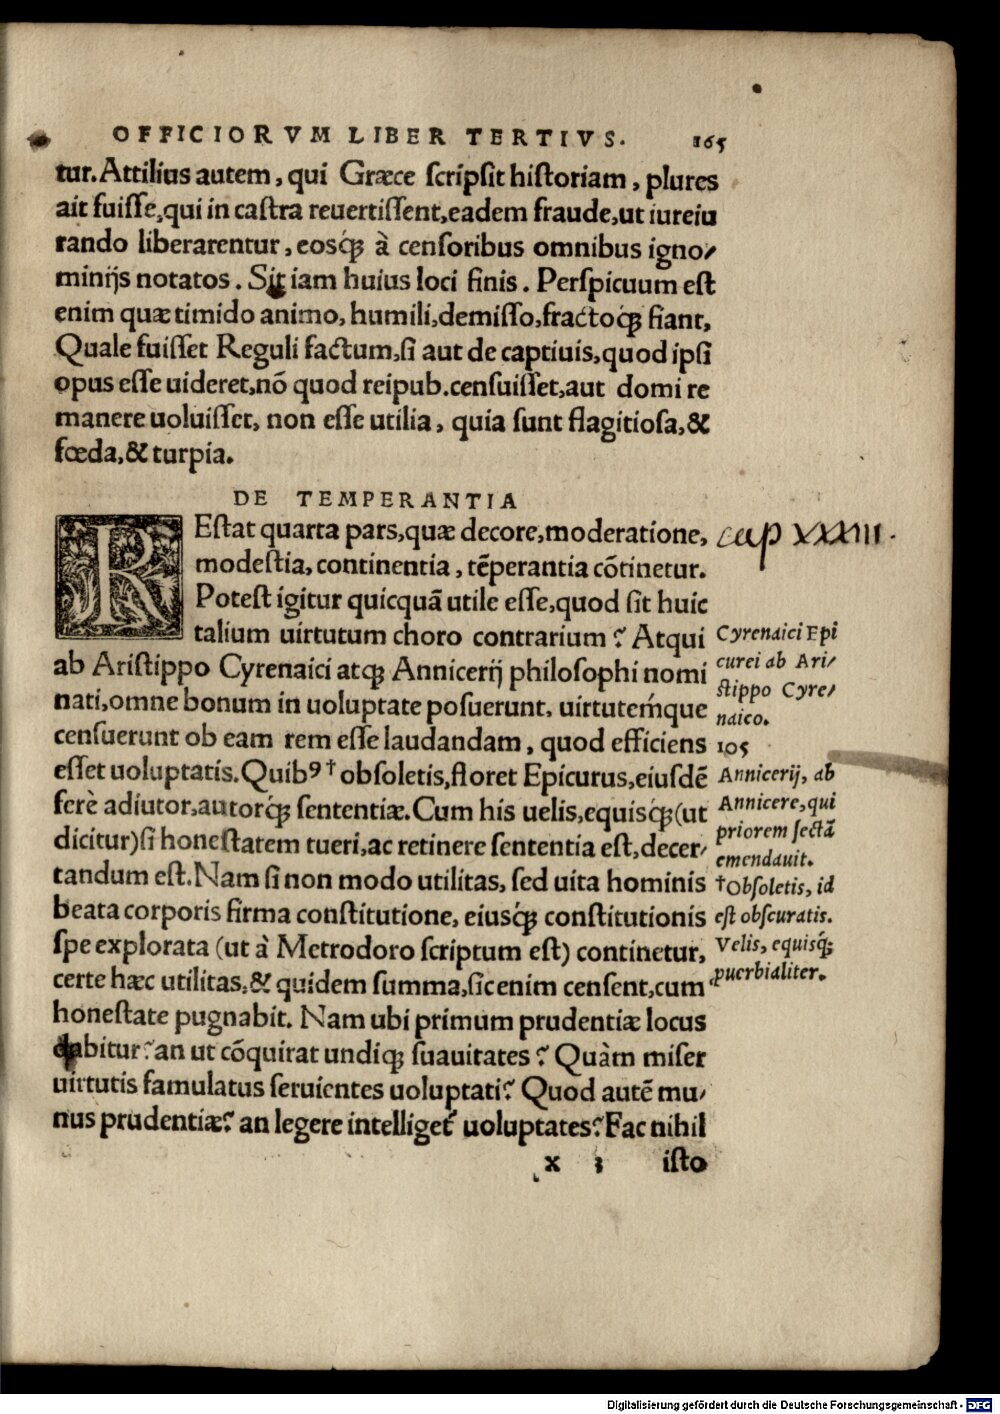 OFFICIORVM LIBER TERTIVS. 165
tur. Attilius autem, qui Græce scripsit historiam, plures
ait fuisse, qui in castra reuertissent, eadem fraude, ut iureiu
rando liberarentur, eosq́; à censoribus omnibus igno/
minijs notatos. Sit iam huius loci finis. Perspicuum est
enim quæ timido animo, humili, demisso, fractoq́; fiant,
Quale fuisset Reguli factum, si aut de captiuis, quod ipsi
opus esse uideret, nõ quod reipub. censuisset, aut domi re
manere uoluisset, non esse utilia, quia sunt flagitiosa, &
fœda, & turpia.
DE TEMPERANTIA
REstat quarta pars, quæ decore, moderatione,
modestia, continentia, tẽperantia cõtinetur.
Potest igitur quicquã utile esse, quod sit huic
talium uirtutum choro contrarium? Atqui
ab Aristippo Cyrenaici atq; Annicerij philosophi nomi
nati, omne bonum in uoluptate posuerunt, uirtuteḿque
censuerunt ob eam rem esse laudandam, quod efficiens
esset uoluptatis. Quibꝰ † obsoletis, floret Epicurus, eiusdẽ
ferè adiutor, autorq́; sententiæ. Cum his uelis, equisq́; (ut
dicitur) si honestatem tueri, ac retinere sententia est, decer/
tandum est. Nam si non modo utilitas, sed uita hominis
beata corporis firma constitutione, eiusq́; constitutionis
spe explorata (ut à Metrodoro scriptum est) continetur,
certe hæc utilitas, & quidem summa, sic enim censent, cum
honestate pugnabit. Nam ubi primum prudentiæ locus
dabitur? an ut cõquirat undiq; suauitates? Quàm miser
uirtutis famulatus seruientes uoluptati? Quod autẽ mu/
nus prudentiæ? an legere intelliget́ uoluptates? Fac nihil
x 3 isto
cap XXXIII.
Cyrenaici Epi
curei ab Ari/
stippo Cyre/
naico.
105
Annicerij, ab
Annicere, qui
priorem sectã
emendauit.
†Obsoletis, id
est obscuratis.
Velis, equisq́;
ꝓuerbialiter.
Digitalisierung gefördert durch die Deutsche Forschungsgemeinschaft - DFG